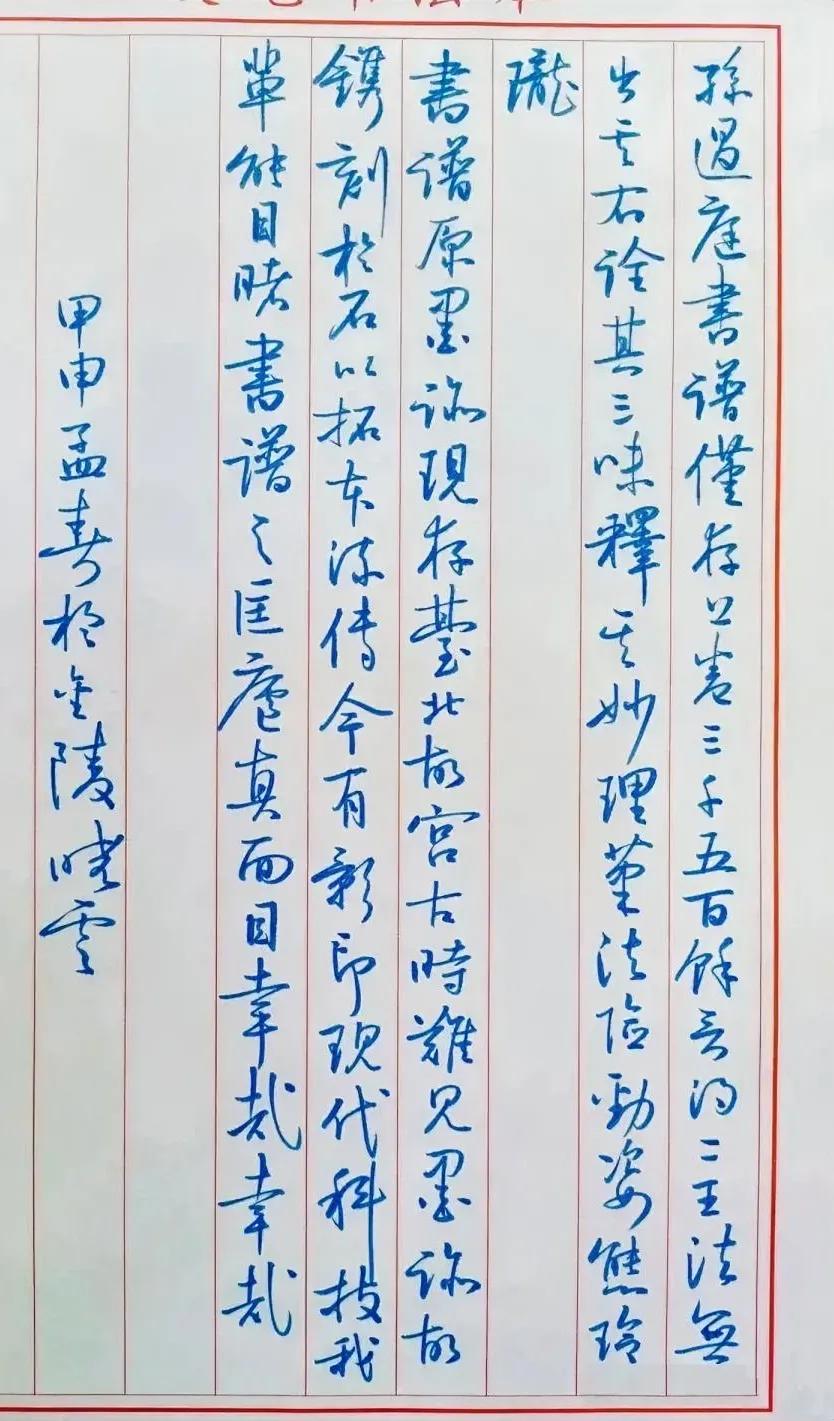 孫過庭書譜僅存上卷三千五百餘言得二王法無
出其右詮其三味釋其妙理筆法險勁姿態玲
瓏
書譜原墨跡現存臺北故宮古時難見墨跡故
鐫刻於石以拓本流傳今有影印現代科技我
輩能目睹書譜之匡廬真面目幸哉幸哉
甲申孟春於金陵曉雲